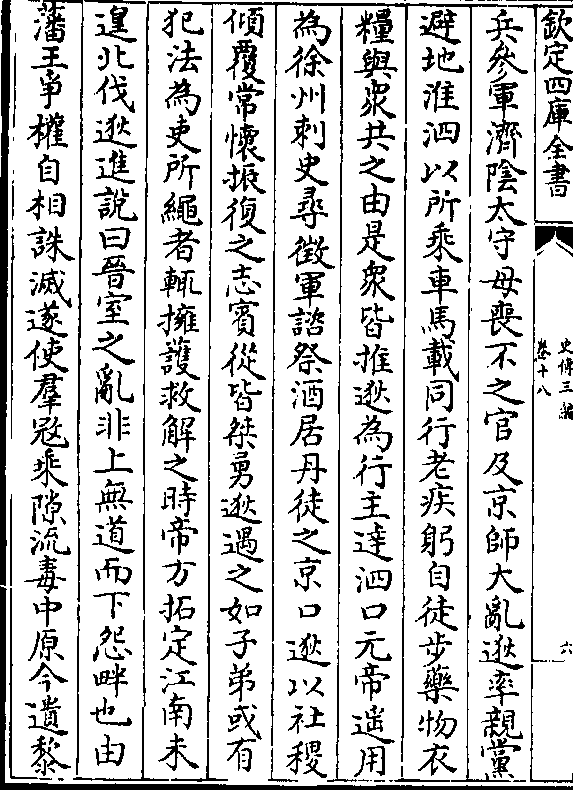 欽定四庫全書
史傳三編
卷十八
六
兵參軍濟陰太守母喪不之官及京師大亂逖率親黨
避地淮泗以所乘車馬載同行老疾躬自徒步藥物衣
糧與衆共之由是衆皆推逖為行主達泗口元帝遥用
為徐州刺史尋徴軍諮祭酒居丹徒之京口逖以社稷
傾覆常懷振復之志賓從皆桀勇逖遇之如子弟或有
犯法為吏所繩者輒擁護救解之時帝方拓定江南未
遑北伐逖進説曰晉室之亂非上無道而下怨畔也由
藩王爭權自相誅滅遂使羣冦乘隙流毒中原今遺黎